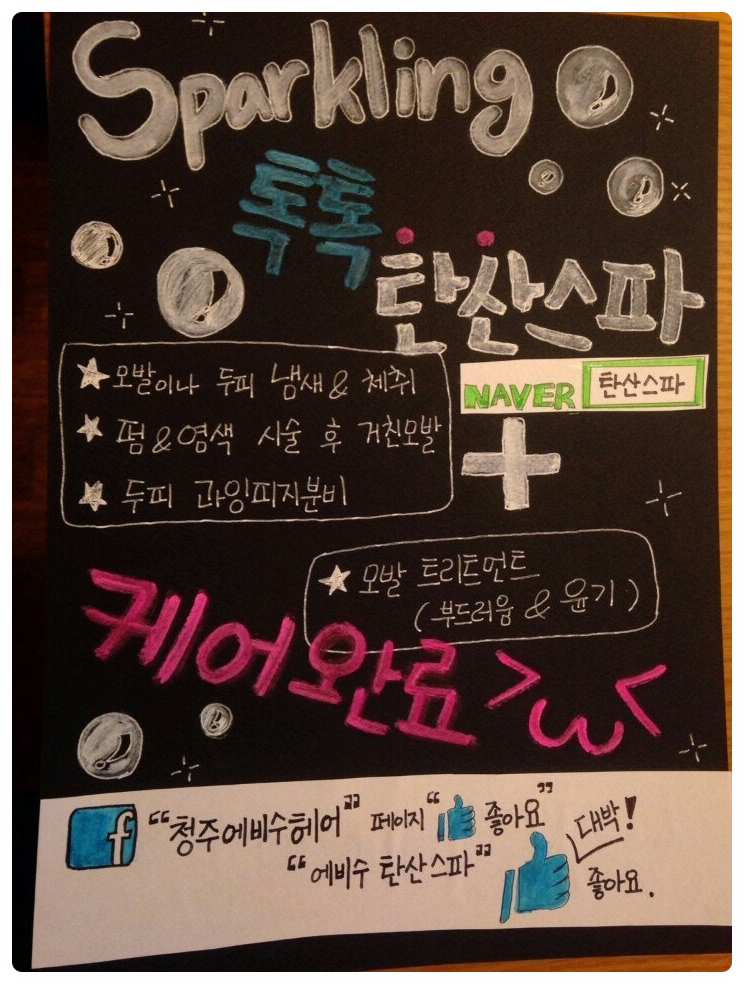 Sparkling
톡톡
탄산스파
★ 모발이나 두피 냄새 & 체취
★ 펌 & 염색 시술 후 거친모발
★ 두피 과잉피지분비
NAVER 탄산스파
+
★ 모발 트리트먼트
(부드러움 & 윤기)
케어완료 >ω<
f "청주에비수헤어" 페이지 "좋아요"
"에비수 탄산스파"
대박!
좋아요.